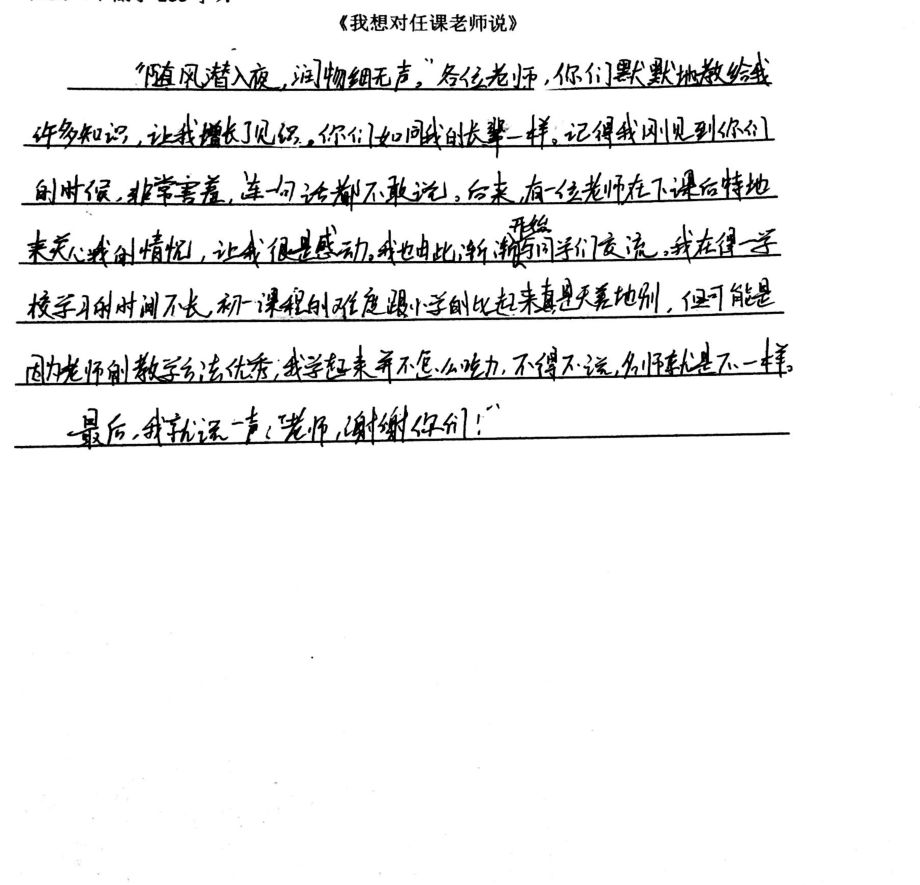 《我想对任课老师说》
“随风潜入夜，润物细无声。”各位老师，你们默默地教给我
许多知识，让我增长了见识。你们如同我的长辈一样。记得我刚见到你们
的时候，非常害羞，连一句话都不敢说。后来，有一位老师在下课后特地
来关心我的情况，让我很是感动。我也由此渐渐开始与同学们交流。我在得一学
校学习的时间不长，初一课程的难度跟小学的比起来真是天差地别，但可能是
因为老师的教学方法优秀，我学起来并不怎么吃力，不得不说，名师就是不一样。
最后，我就说一声：“老师，谢谢你们！”